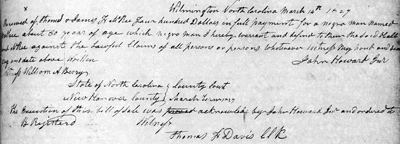 Wilmington North Carolina March 14th 1827
Received of Thomas & James F. McRee Four hundred Dollars in full payment for a negro man named
about 30 years of age which negro man I hereby warrant and defend to them the said
against the Lawful Claims of all persons or persons Whatever witness My hand and
and date above written
John Howard Jur
William A Berry
State of North Carolina County Court
New Hanover County March Term 1827
the Execution of this bill of Sale was acknowledged by John Howard Jur and ordered to
be Registered Witness
Thomas F Davis Clk